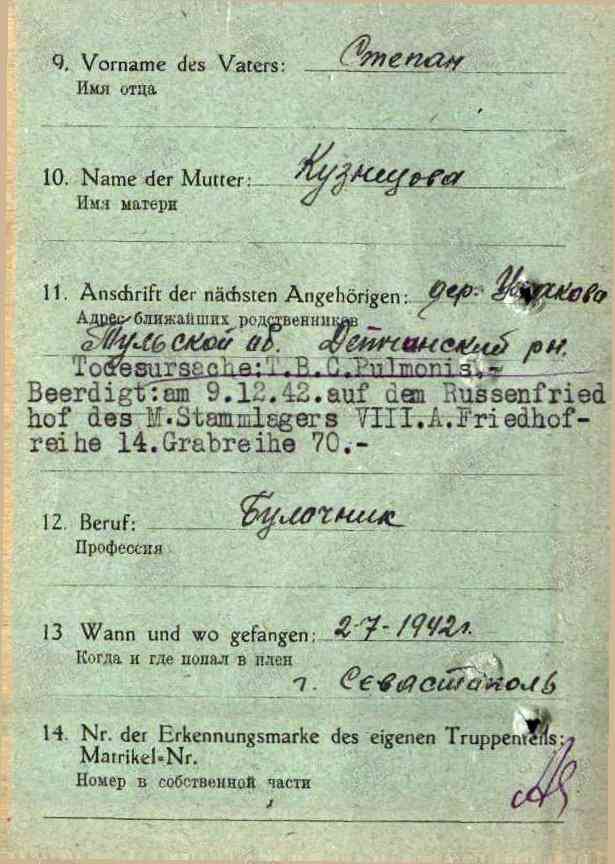 9. Vorname des Vaters: Степан
Имя отца
10. Name der Mutter: Кузнецова
Имя матери
11. Anschrift der nächsten Angehörigen: дер.
Адрес ближайших родственников
Тульской об. Детчинский рн.
Todesursache:T.B.C.Pulmonis.-
Beerdigt:am 9.12.42.auf dem Russenfried
hof des M.Stammlagers VIII.A.Friedhof-
reihe 14.Grabreihe 70.-
12. Beruf: Булочник
Профессия
13 Wann und wo gefangen: 2-7-1942г.
Когда и где попал в плен
г. Севастополь
14. Nr. der Erkennungsmarke des eigenen Truppenteils:
Matrikel-Nr.
Номер в собственной части